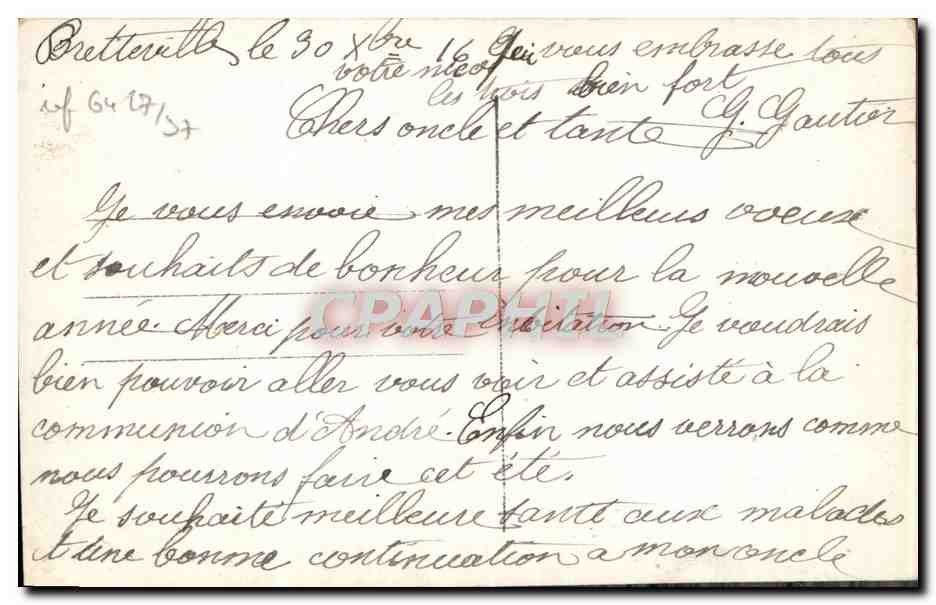 Bretteville le 30 Xbre 16 qui vous embrasse tous
votre nièce
les trois bien fort
G. Gautier
ref 64 27/37
Chers oncle et tante
Je vous envoie mes meilleurs voeux
et souhaits de bonheur pour la nouvelle
année. Merci pour votre invitation. Je voudrais
bien pouvoir aller vous voir et assisté à la
communion d'André. Enfin nous verrons comme
nous pourrons faire cet été.
Je souhaite meilleure santé aux malades
et une bonne continuation a mon oncle
CPAPHIL